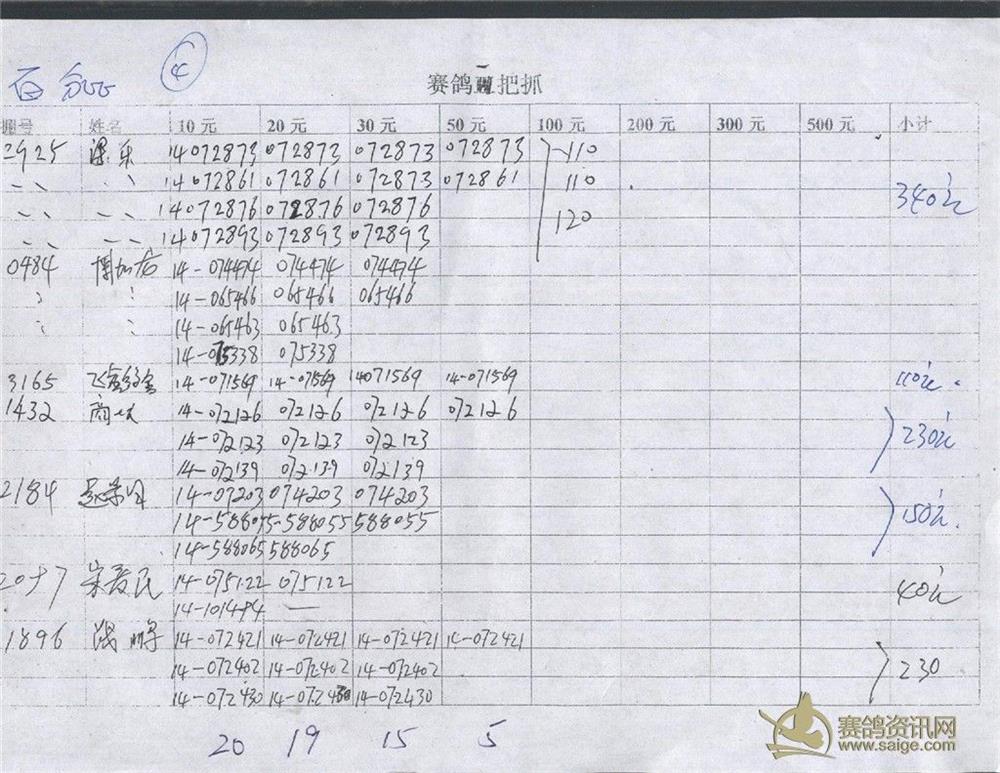 ④
赛鸽 一 把抓
棚号 姓名 10元 20元 30元 50元 100元 200元 300元 500元 小计
2925 梁乐 14072873 072873 072873 072873 110
14072861 072861 072873 072861 110 340元
14072876 072876 072876 120
14072893 072893 072893
0484 14-074474 074474 074474
14-065466 065466 065466
14-065463 065463
14-075338 075338
3165 14-071569 14-071569 14071569 14-071569 110元.
1432 14-072126 072126 072126 072126
14-072123 072123 072123 230元
14-072139 072139 072139
2184 14-07203 074203 074203
14-588055-588055 588055 150元.
14-588065 588065
20+7 14-075122 075122 40元
14-101494 —
1896 鹏 14-072421 14-072421 14-072421 14-072421
14-072402 14-072402 14-072402 230
14-072430 14-072430 14-072430
20 19 15 5
赛鸽资讯网
www.saige.com